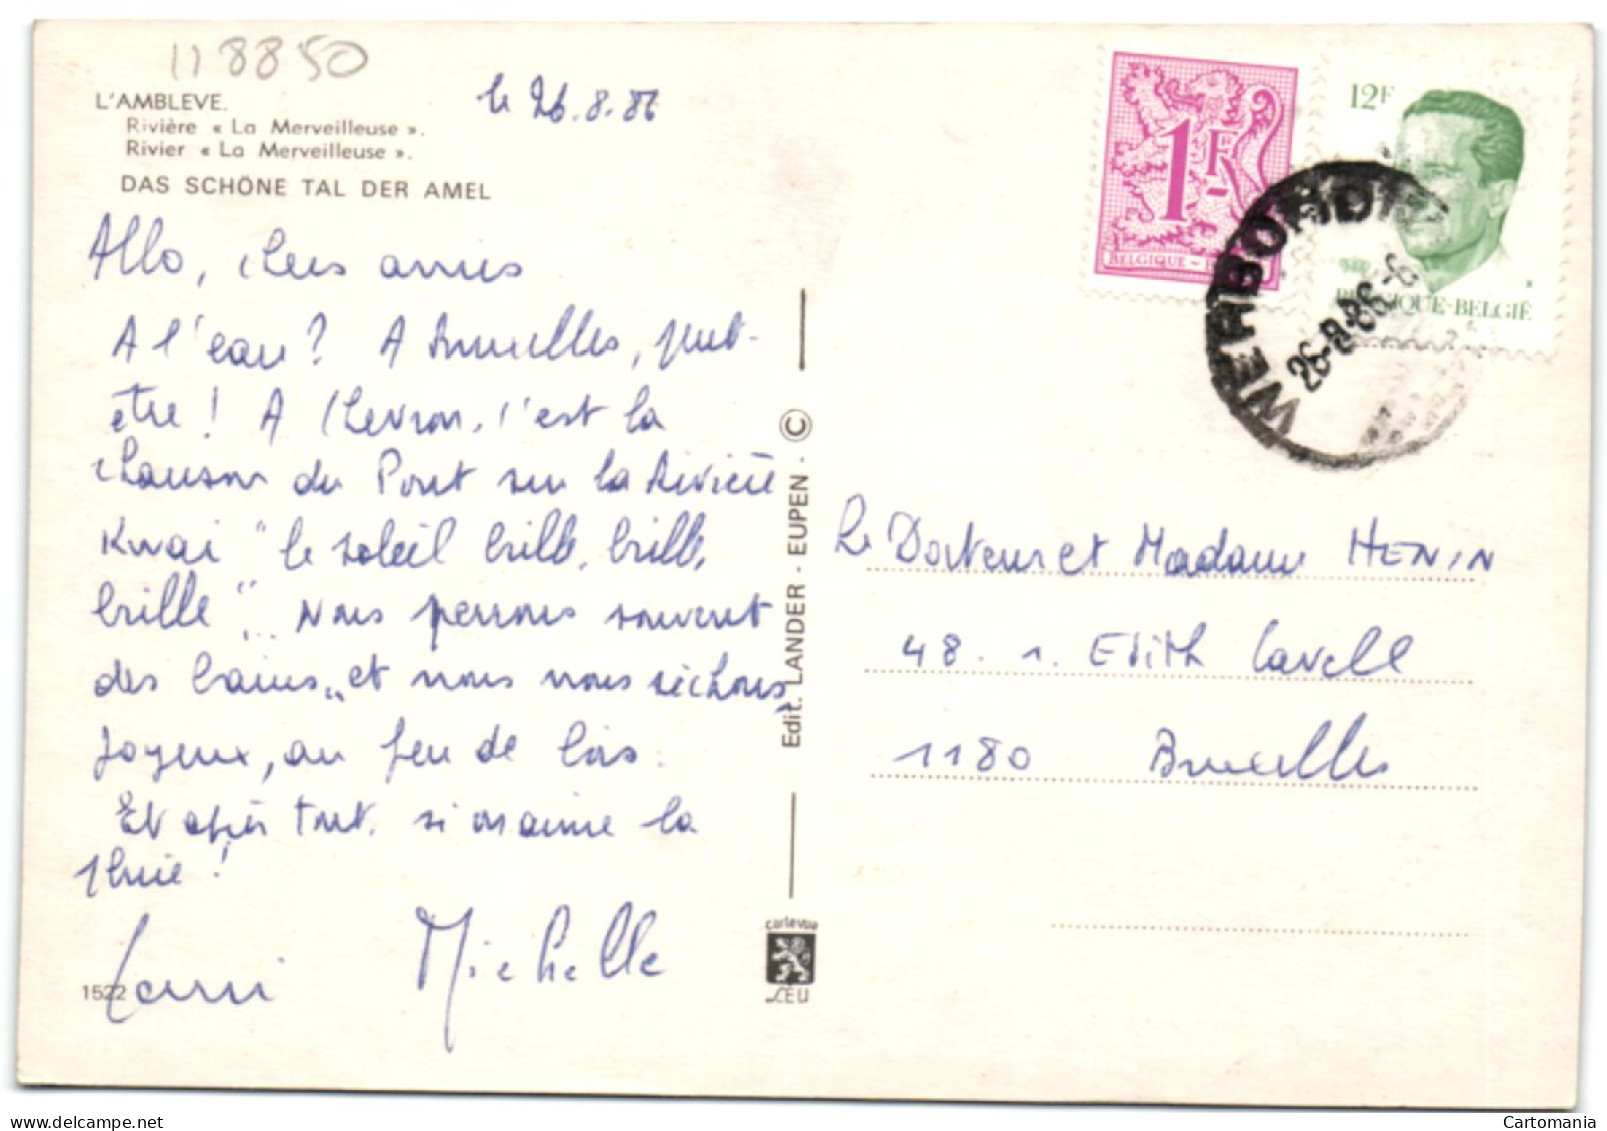 118850
L'AMBLEVE.
Rivière « La Merveilleuse ».
Rivier « La Merveilleuse ».
DAS SCHÖNE TAL DER AMEL
le 26.8.86
Allo, chers amis
A l'eau ? A Bruxelles, peut-
être ! A Chevron, c'est la
chanson du Pont sur la Rivière
Kwai "le soleil brille, brille,
brille"... Nous prenons souvent
des bains,, et nous nous séchons,
joyeux, au feu de bois.
Et après tout, si on aime la
pluie !
Michelle
1522
Edit. LANDER - EUPEN - ©
cartevue
CEU
1F
BELGIQUE -
12F
BELGIQUE-BELGIË
WERBOMONT
26-8-86
Le Docteur et Madame HENIN
48. r. Edith Cavell
1180 Bruxelles
Cartomania